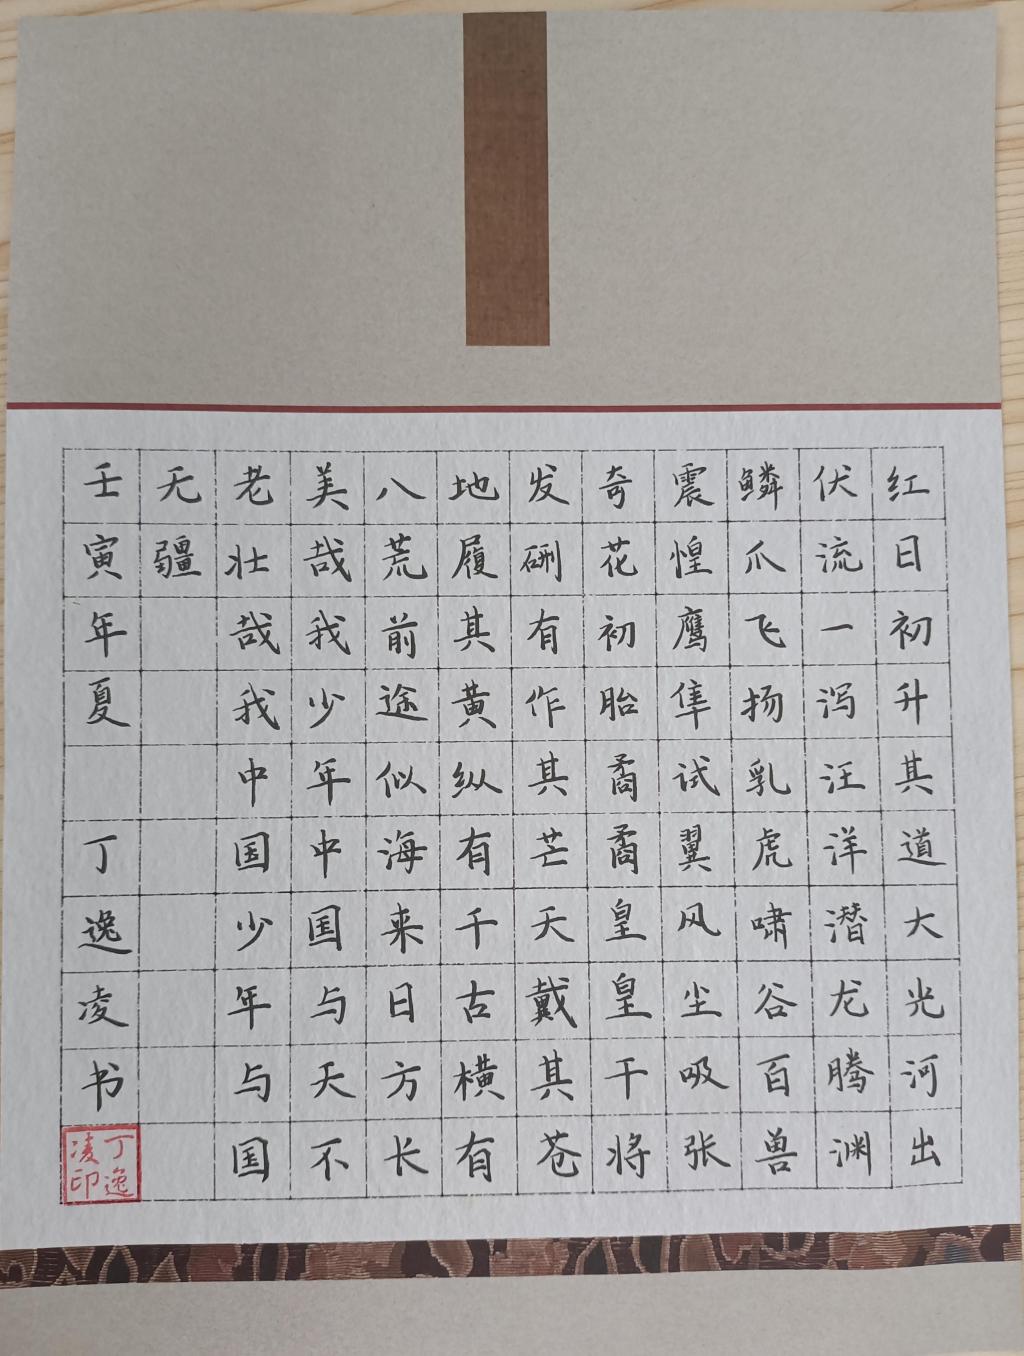 红日初升其道大光河出
伏流一泻汪洋潜龙腾渊
鳞爪飞扬乳虎啸谷百兽
震惶鹰隼试翼风尘吸张
奇花初胎矞矞皇皇干将
发硎有作其芒天戴其苍
地履其黄纵有千古横有
八荒前途似海来日方长
美哉我少年中国与天不
老壮哉我中国少年与国
无疆
壬寅年夏 丁逸凌书
丁逸凌印